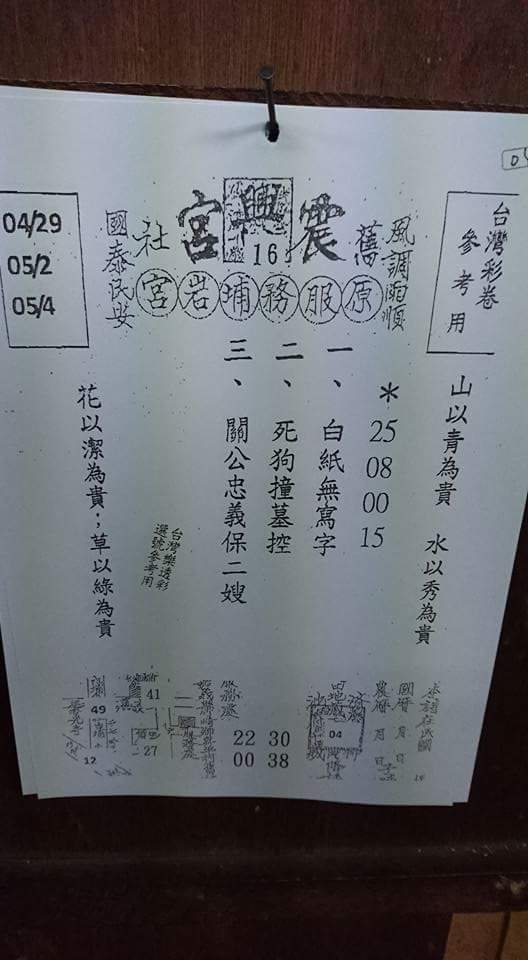 台灣彩卷
參考用
風調雨順
舊
震興宮
16
社
國泰民安
04/29
05/2
05/4
原服務埔岩宮
山以青為貴 水以秀為貴
*25 08 00 15
一、白紙無寫字
二、死狗撞墓控
三、關公忠義保二嫂
花以潔為貴；草以綠為貴
台灣樂透彩
選號參考用
國曆 月 日
農曆 月 日
04
30
38
22
00
41
27
49
12